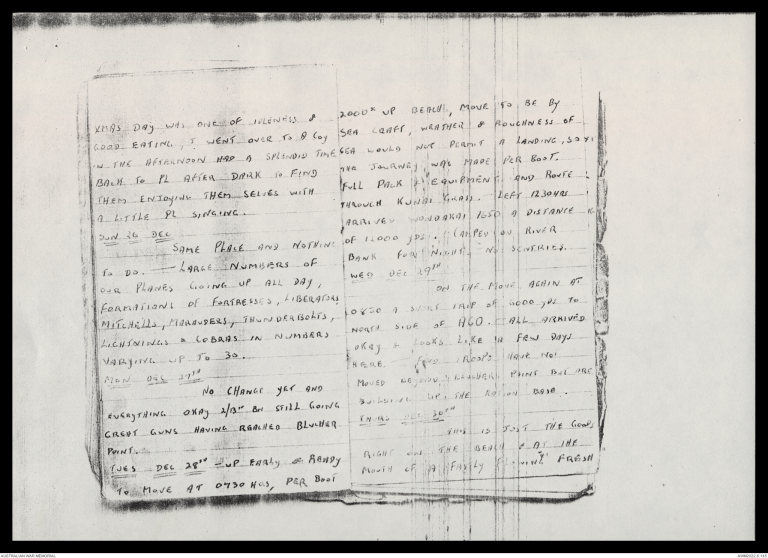 XMAS DAY WAS ONE OF IDLENESS &
GOOD EATING, I WENT OVER TO A COY
IN THE AFTERNOON HAD A SPLENDID TIME
BACK TO PL AFTER DARK TO FIND
THEM ENJOYING THEM SELVES WITH
A LITTLE PL SINGING.
SUN 26 DEC
SAME PLACE AND NOTHING
TO DO. LARGE NUMBERS OF
OUR PLANES GOING UP ALL DAY,
FORMATIONS OF FORTRESSES, LIBERATORS
MITCHELLS, MARAUDERS, THUNDERBOLTS,
LIGHTNINGS & COBRAS IN NUMBERS
VARYING UP TO 30.
MON DEC 27TH
NO CHANGE YET AND
EVERYTHING OKAY 2/13TH BN STILL GOING
GREAT GUNS HAVING REACHED BLUCHER
POINT.
TUES DEC 28TH - UP EARLY & READY
TO MOVE AT 0730 HRS, PER BOOT
2000X UP BEACH, MOVE TO BE BY
SEA CRAFT, WEATHER & ROUGHNESS OF
SEA WOULD NOT PERMIT A LANDING, SO
THE JOURNEY WAS MADE PER BOOT.
FULL PACK & EQUIPMENT AND ROUTE
THROUGH KUNAI GRASS. LEFT 1230 HRS
ARRIVED 1650 A DISTANCE
OF 12000 YDS. CAMPED ON RIVER
BANK FOR NIGHT, NO SENTRIES.
WED DEC 29TH
ON THE MOVE AGAIN AT
0830 A SHORT TRIP OF 6000 YDS TO
NORTH SIDE OF AGO. ALL ARRIVED
OKAY & LOOKS LIKE A FEW DAYS
HERE. FWD TROOPS HAVE NOT
MOVED BEYOND BLUCHER POINT BUT ARE
BUILDING UP THE RATION BASE.
THURS DEC 30TH
THIS IS JUST THE GOODS
RIGHT ON THE BEACH & AT THE
MOUTH OF A FASTLY FLOWING FRESH
AUSTRALIAN WAR MEMORIAL